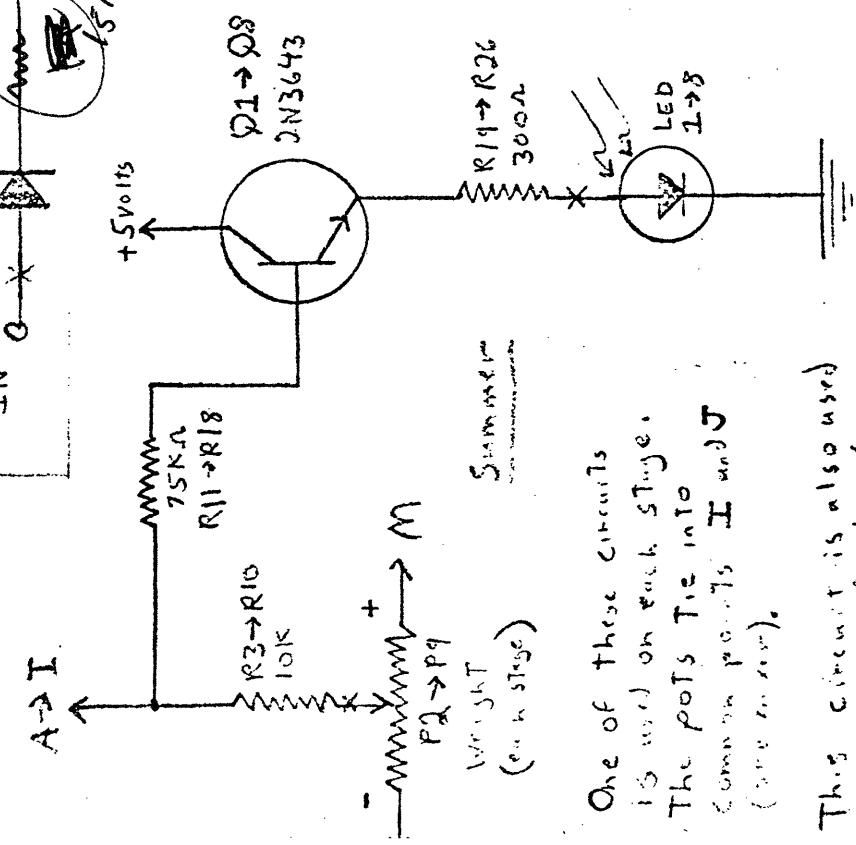 IN
+5 volts
Q1→Q8
2N3643
R19→R26
300Ω
LED
1→8
75KΩ
R11→R18
A→I
R3→R10
10K
-
+
M
P2→P9
Weight
(each stage)
Summer
One of these circuits
is used on each stage.
The pots Tie into
common points I and J
This circuit is also used